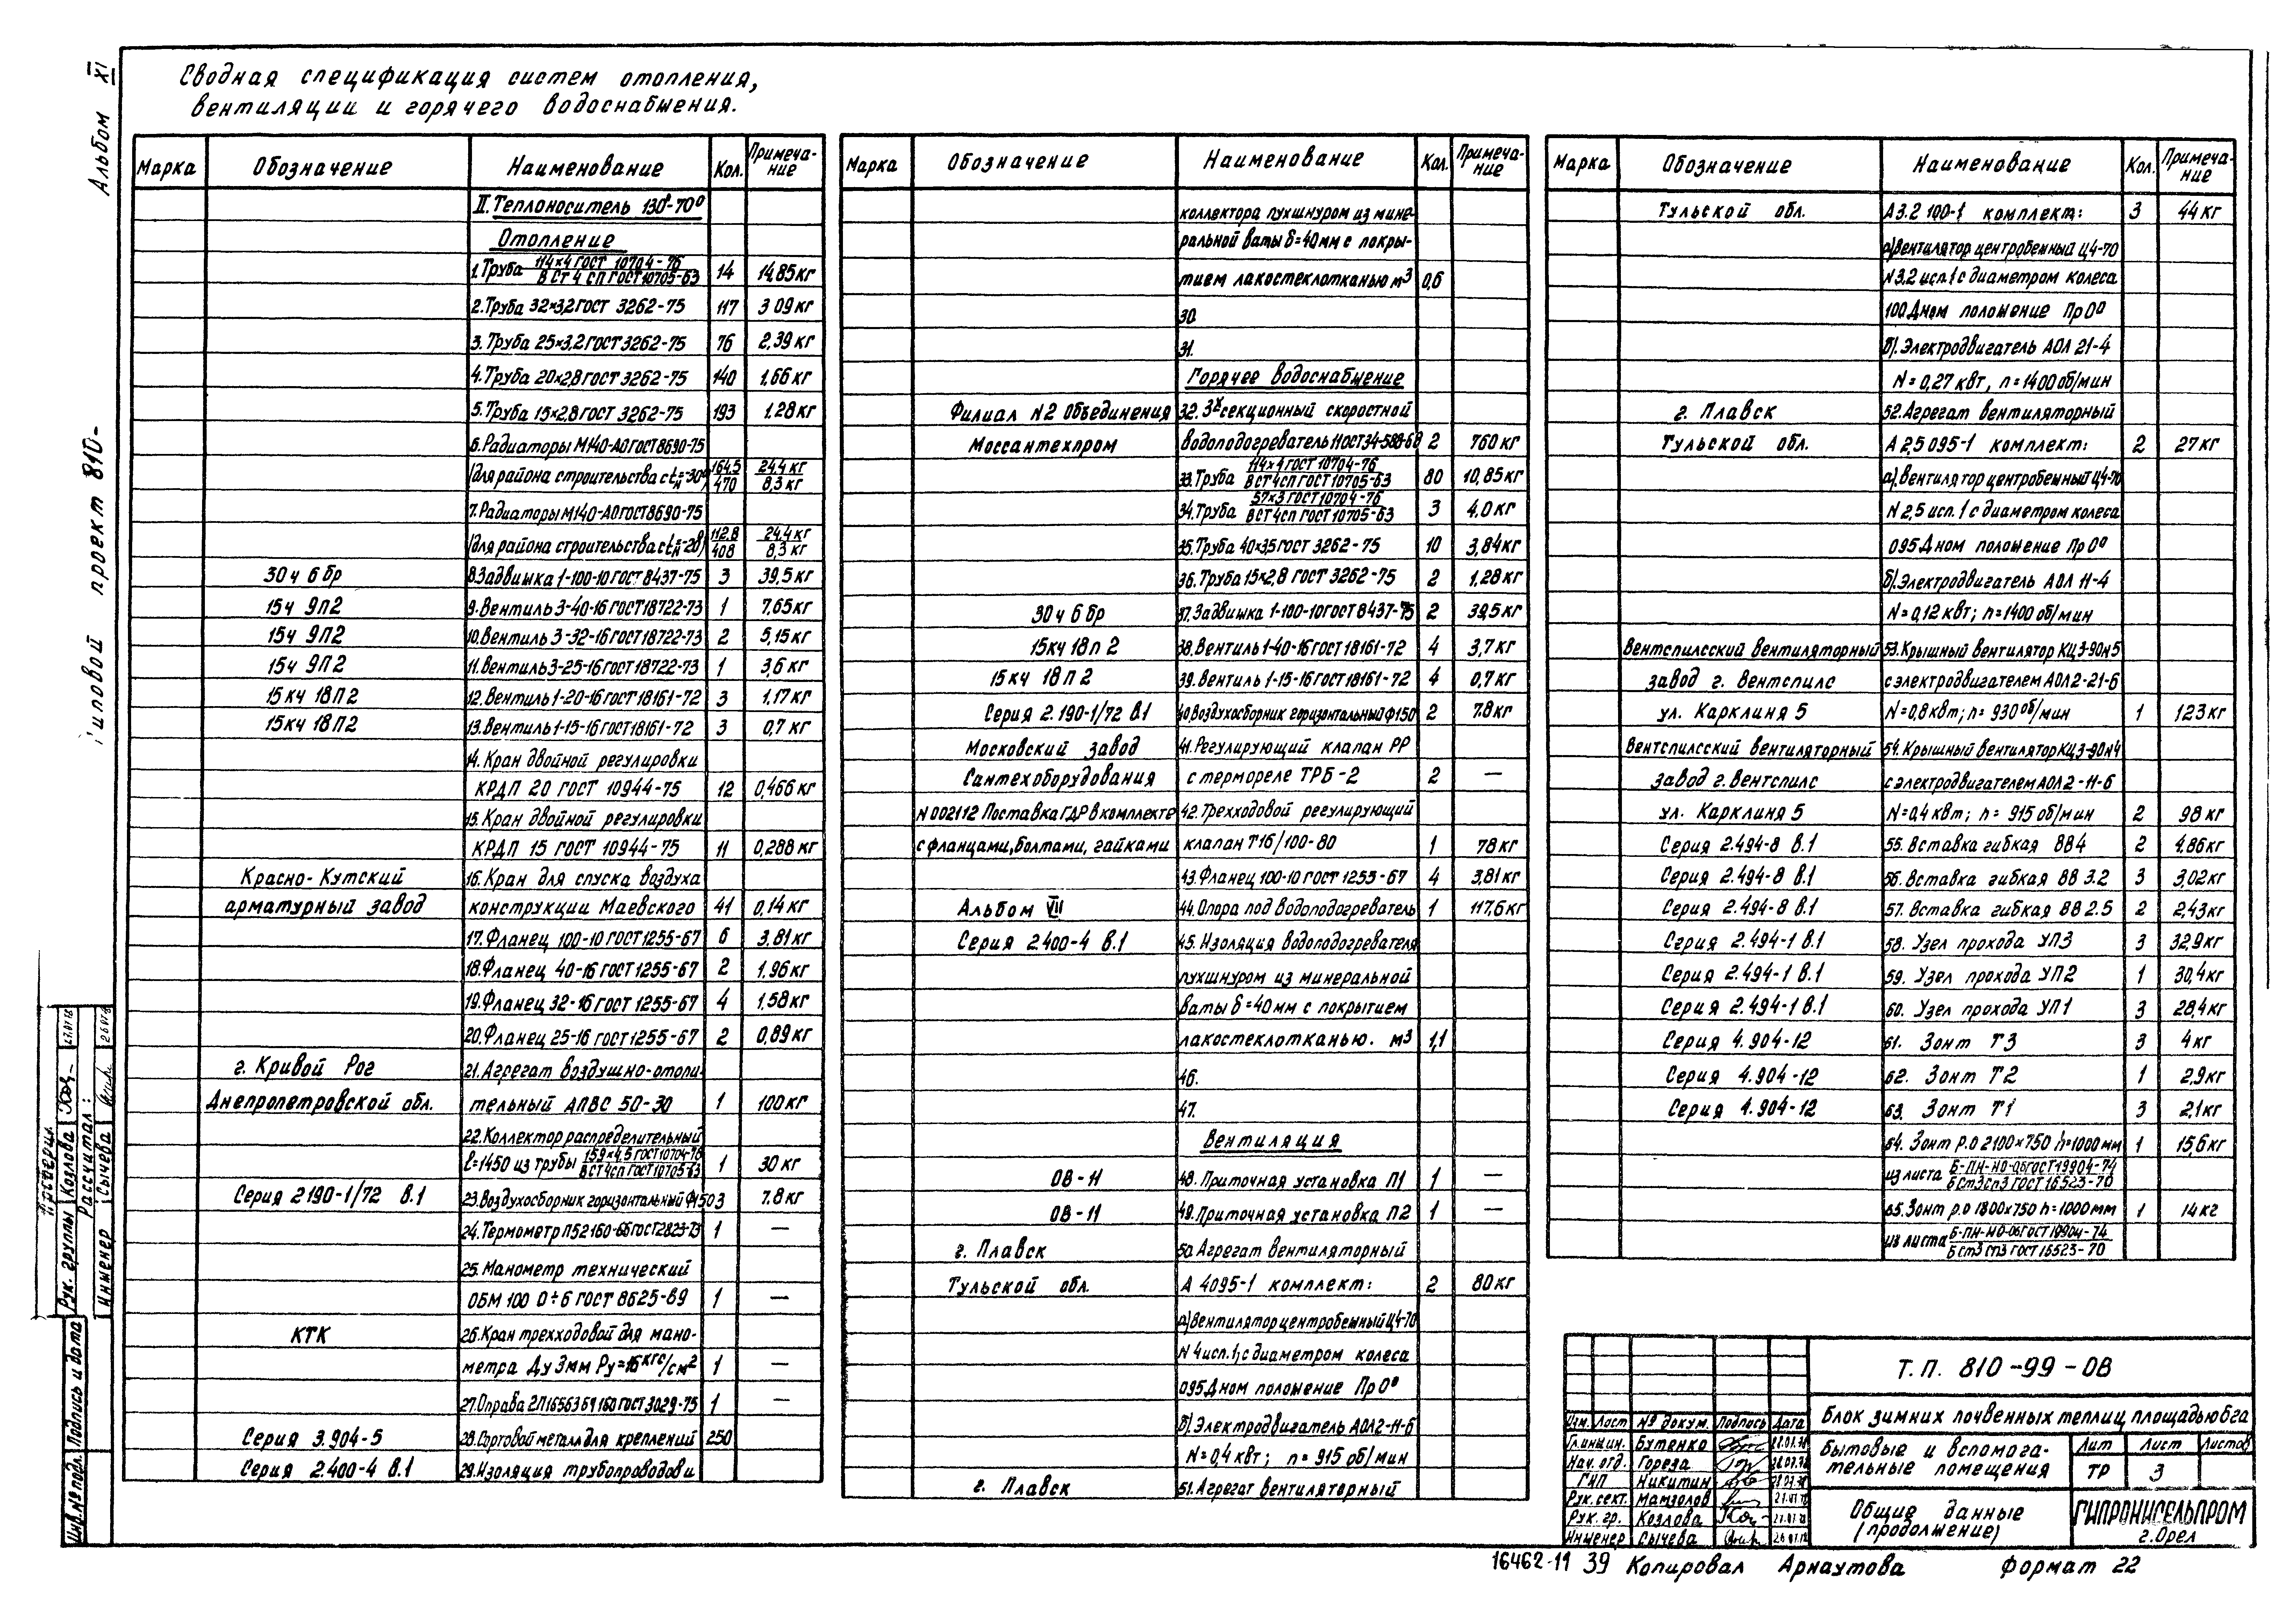 Альбом XI
Типовой проект 810-
Сводная спецификация систем отопления,
вентиляции и горячего водоснабжения.
Марка Обозначение Наименование Кол. Примечание
II. Теплоноситель 130°-70°
Отопление
1. Труба 114×4 ГОСТ 10704-76 / В СТ 4 сп ГОСТ 10705-63 14 14,85кг
2. Труба 32×3,2 ГОСТ 3262-75 117 3 09кг
3. Труба 25×3,2 ГОСТ 3262-75 76 2,39кг
4. Труба 20×2,8 ГОСТ 3262-75 140 1,66кг
5. Труба 15×2,8 ГОСТ 3262-75 193 1.28кг
6. Радиаторы М140-АО ГОСТ 8690-75
/для района строительства с tн=-30°/ 164,5/470 24,4 кг/8,3 кг
7. Радиаторы М140-АО ГОСТ 8690-75
/для района строительства с tн=-20°/ 112.8/408 24.4 кг/8,3 кг
30ч 6 бр 8. Задвижка 1-100-10 ГОСТ 8437-75 3 39,5кг
15ч 9П2 9. Вентиль 3-40-16 ГОСТ 18722-73 1 7,65кг
15ч 9П2 10. Вентиль 3-32-16 ГОСТ 18722-73 2 5,15кг
15ч 9П2 11. Вентиль 3-25-16 ГОСТ 18722-73 1 3,6 кг
15кч 18П2 12. Вентиль 1-20-16 ГОСТ 18161-72 3 1.17кг
15кч 18П2 13. Вентиль 1-15-16 ГОСТ 18161-72 3 0,7 кг
14. Кран двойной регулировки
КРДП 20 ГОСТ 10944-75 12 0,466кг
15. Кран двойной регулировки
КРДП 15 ГОСТ 10944-75 11 0,288кг
Красно-Кутский 16. Кран для спуска воздуха
арматурный завод конструкции Маевского 41 0,14кг
17. Фланец 100-10 ГОСТ 1255-67 6 3.81кг
18. Фланец 40-16 ГОСТ 1255-67 2 1.96кг
19. Фланец 32-16 ГОСТ 1255-67 4 1.58кг
20. Фланец 25-16 ГОСТ 1255-67 2 0,89кг
г. Кривой Рог 21. Агрегат воздушно-отопи-
Днепропетровской обл. тельный АПВС 50-30 1 100кг
22. Коллектор распределительный
ℓ=1450 из трубы 159×4,5 ГОСТ 10704-76 / В СТ 4сп ГОСТ 10705-63 1 30 кг
Серия 2190-1/72 в.1 23. Воздухосборник горизонтальный ф150 3 7.8 кг
24. Термометр П52160-66 ГОСТ 2823-73 1 —
25. Манометр технический
ОБМ 100 0÷6 ГОСТ 8625-69 1 —
КТК 26. Кран трехходовой для мано-
метра Ду 3мм Ру=16кгс/см² 1 —
27. Оправа 2П 165 63 64 160 ГОСТ 3029-75 1 —
Серия 3.904-5 28. Сортовой металл для креплений 250
Серия 2.400-4 в.1 29. Изоляция трубопроводов и
Марка Обозначение Наименование Кол. Примечание
коллектора пухшнуром из мине-
ральной ваты δ=40мм с покры-
тием лакостеклотканью м³ 0,6
30.
31.
Горячее водоснабжение
Филиал N2 Объединения 32. 3х секционный скоростной
Моссантехпром водоподогреватель 11 ОСТ 34-588-68 2 760 кг
33. Труба 114×4 ГОСТ 10704-76 / В СТ 4сп ГОСТ 10705-63 80 10,85кг
34. Труба 57×3 ГОСТ 10704-76 / В СТ 4сп ГОСТ 10705-63 3 4.0кг
35. Труба 40×3,5 ГОСТ 3262-75 10 3,84кг
36. Труба 15×2,8 ГОСТ 3262-75 2 1.28кг
30ч 6 бр 37. Задвижка 1-100-10 ГОСТ 8437-75 2 39,5кг
15кч 18п 2 38. Вентиль 1-40-16 ГОСТ 18161-72 4 3,7кг
15кч 18П 2 39. Вентиль 1-15-16 ГОСТ 18161-72 4 0,7кг
Серия 2.190-1/72 в.1 40 Воздухосборник горизонтальный ф150 2 7.8кг
Московский завод 41. Регулирующий клапан РР
Сантехоборудования с термореле ТРБ-2 2 —
N002112 Поставка ГДР в комплекте 42. Трехходовой регулирующий
с фланцами, болтами, гайками клапан Т16/100-80 1 78кг
43. Фланец 100-10 ГОСТ 1255-67 4 3,81кг
Альбом VII 44. Опора под водоподогреватель 1 117,6кг
Серия 2.400-4 в.1 45. Изоляция водоподогревателя
пухшнуром из минеральной
ваты δ=40мм с покрытием
лакостеклотканью. м³ 1,1
46.
47.
Вентиляция
ОВ-11 48. Приточная установка П1 1 —
ОВ-11 49. Приточная установка П2 1 —
г. Плавск 50. Агрегат вентиляторный
Тульской обл. А 4095-1 комплект: 2 80 кг
а) Вентилятор центробежный Ц4-70
N4 исп. 1, с диаметром колеса
095 Дном положение Пр 0°
б). Электродвигатель АОЛ2-11-6
N=0,4 квт; n=915 об/мин
г. Плавск 51. Агрегат вентиляторный
Марка Обозначение Наименование Кол. Примечание
Тульской обл. А3.2 100-1 комплект: 3 44кг
а) Вентилятор центробежный Ц4-70
N3.2 исп. 1 с диаметром колеса
100 Дном положение Пр 0°
б). Электродвигатель АОЛ 21-4
N=0,27 квт, n=1400 об/мин
г. Плавск 52. Агрегат вентиляторный
Тульской обл. А 2,5 095-1 комплект: 2 27кг
а). Вентилятор центробежный Ц4-70
N2,5 исп. 1 с диаметром колеса
095 Дном положение Пр 0°
б). Электродвигатель АОЛ 11-4
N=0,12 квт; n=1400 об/мин
Вентспилсский вентиляторный 53. Крышный вентилятор КЦ3-90 N5
завод г. Вентспилс с электродвигателем АОЛ2-21-6
ул. Карклиня 5 N=0,8 квт; n= 930 об/мин 1 123кг
Вентспилсский вентиляторный 54. Крышный вентилятор КЦ3-90 N4
завод г. Вентспилс с электродвигателем АОЛ2-11-6
ул. Карклиня 5 N=0,4 квт; n= 915 об/мин 2 98 кг
Серия 2.494-8 в.1 55. Вставка гибкая ВВ4 2 4.86кг
Серия 2.494-8 в.1 56. Вставка гибкая ВВ 3.2 3 3,02кг
Серия 2.494-8 в.1 57. Вставка гибкая ВВ 2.5 2 2,43кг
Серия 2.494-1 в.1 58. Узел прохода УП3 3 32,9кг
Серия 2.494-1 в.1 59. Узел прохода УП2 1 30,4кг
Серия 2.494-1 в.1 60. Узел прохода УП1 3 28,4кг
Серия 4.904-12 61. Зонт Т3 3 4кг
Серия 4.904-12 62. Зонт Т2 1 2,9кг
Серия 4.904-12 63. Зонт Т1 3 2,1кг
64. Зонт р.о 2100×750 h=1000 мм 1 15,6кг
из листа Б-ПН-НО-0,6 ГОСТ 19904-74 / Б Ст3 сп3 ГОСТ 16523-70
65. Зонт р.о 1800×750 h=1000мм 1 14кг
из листа Б-ПН-НО-0,6 ГОСТ 19904-74 / Б Ст3 сп3 ГОСТ 16523-70
Рук. группы Козлова 27.07.78
Рассчитал:
Инженер Сычева
Инв.№ подл. Подпись и дата
Т.П. 810-99-ОВ
Блок зимних почвенных теплиц площадью 6га
Изм. Лист № докум. Подпись Дата
Гл.инжин. Бутенко
Нач. отд. Гореза
ГИП Никитин
Рук. сект. Мамзолов
Рук. гр. Козлова
Инженер Сычева
Бытовые и вспомога-
тельные помещения
Лит Лист Листов
ТР 3
Общие данные
(продолжение)
ГИПРОНИСЕЛЬПРОМ
г. Орел
16462-11 39 Копировал Арнаутова Формат 22